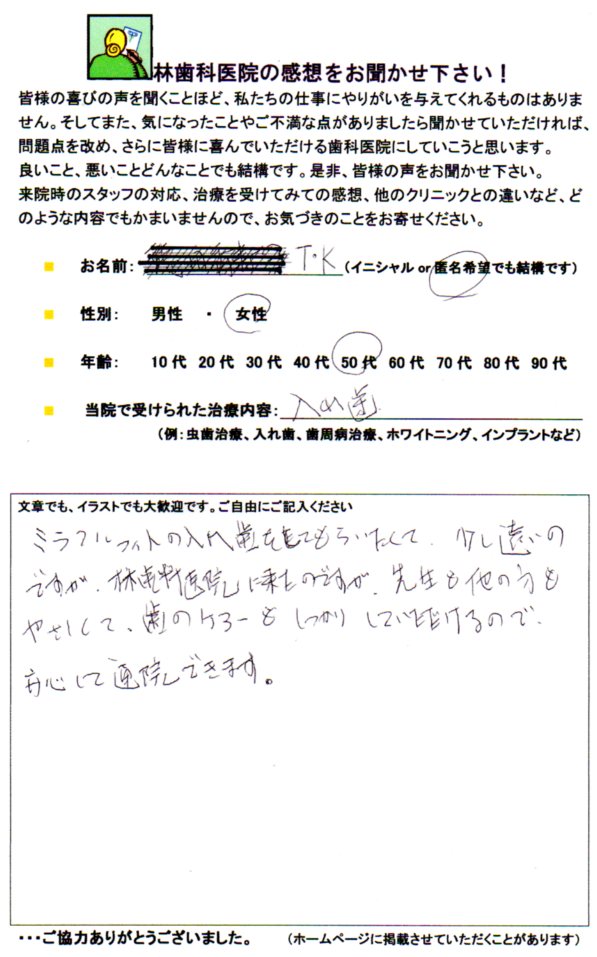 林歯科医院の感想をお聞かせ下さい！
皆様の喜びの声を聞くことほど、私たちの仕事にやりがいを与えてくれるものはありま
せん。そしてまた、気になったことやご不満な点がありましたら聞かせていただければ、
問題点を改め、さらに皆様に喜んでいただける歯科医院にしていこうと思います。
良いこと、悪いことどんなことでも結構です。是非、皆様の声をお聞かせ下さい。
来院時のスタッフの対応、治療を受けてみての感想、他のクリニックとの違いなど、ど
のような内容でもかまいませんので、お気づきのことをお寄せください。
お名前： T・K （イニシャル or 匿名希望でも結構です）
性別： 男性 ・ 女性
年齢： 10代 20代 30代 40代 50代 60代 70代 80代 90代
当院で受けられた治療内容： 入れ歯
（例：虫歯治療、入れ歯、歯周病治療、ホワイトニング、インプラントなど）
文章でも、イラストでも大歓迎です。ご自由にご記入ください
ミラフルフィットの入れ歯をしてもらいたくて、少し遠いの
ですが、林歯科医院に来たのですが、先生も他の方も
やさしくて、歯のケアーもしっかりしていただけるので、
安心して通院できます。
・・・ご協力ありがとうございました。 （ホームページに掲載させていただくことがあります）